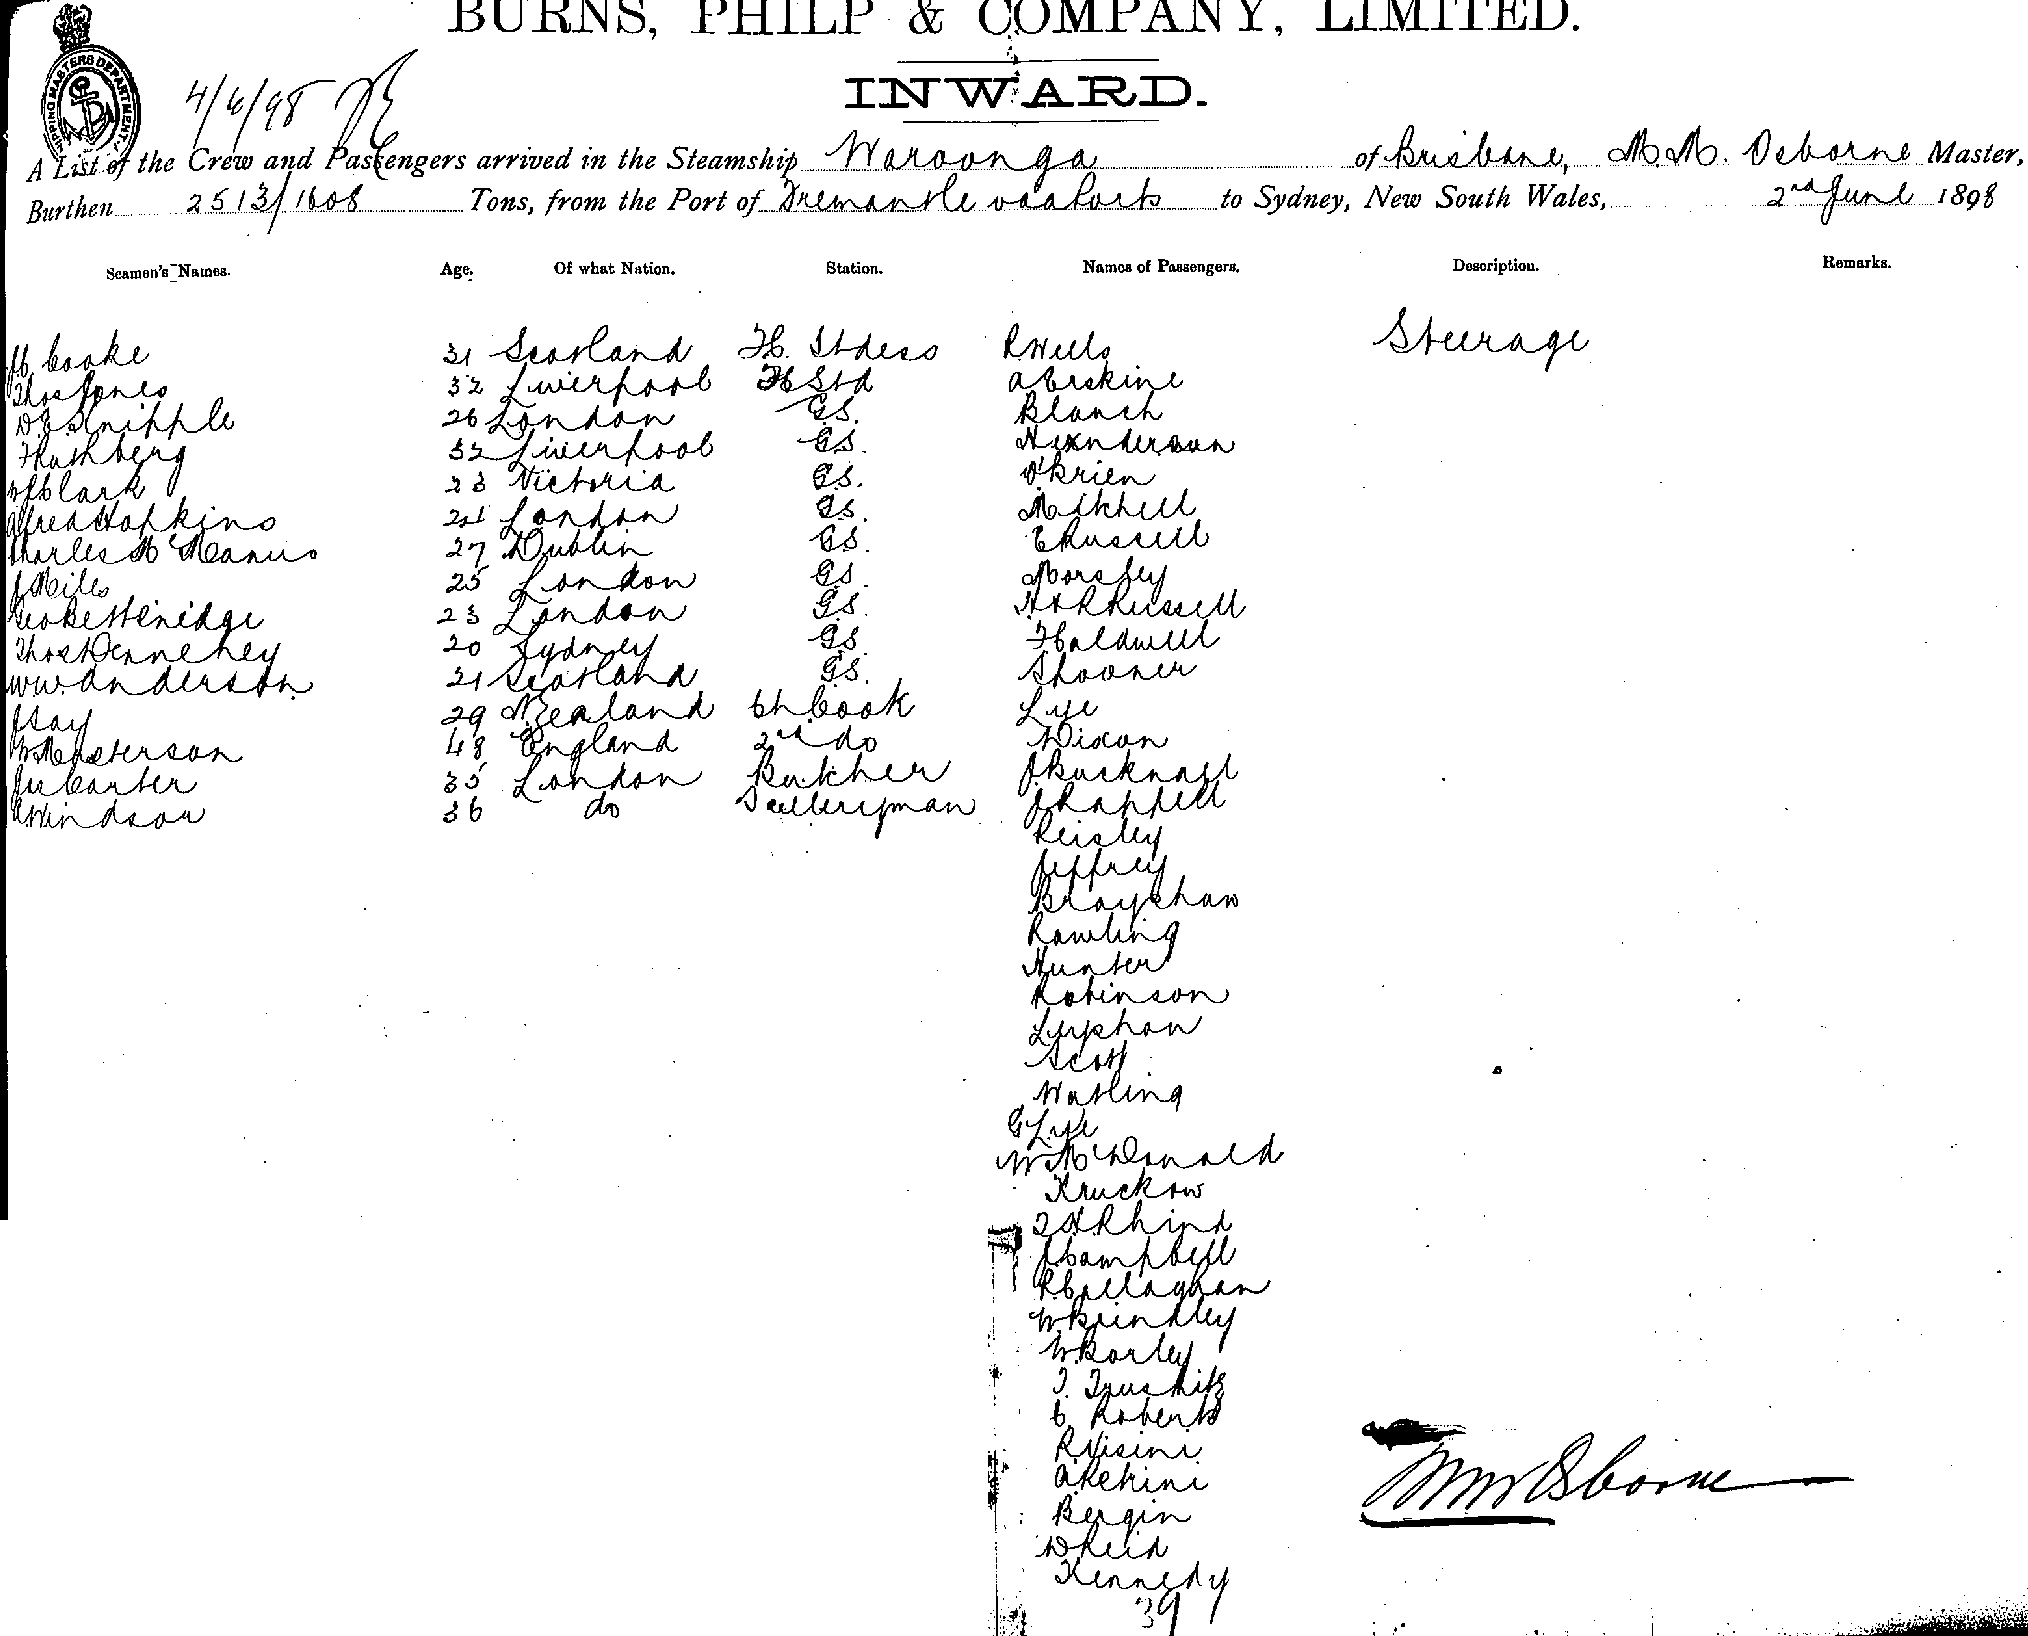 BURNS, PHILP & COMPANY, LIMITED.
INWARD.
SHIPPING MASTERS DEPARTMENT
4/6/98
A List of the Crew and Passengers arrived in the Steamship Waroonga of Brisbane, M. M. Osborne Master,
Burthen 2513/1608 Tons, from the Port of Fremantle via Ports to Sydney, New South Wales, 2nd June 1898
Seamen's Names. Age. Of what Nation. Station. Names of Passengers. Description. Remarks.
Cooke 31 Scotland F.C. Stdess R Wells Steerage
Thos Jones 32 Liverpool FC Std A Erskine
Snipple 26 London G.S. Blanch
32 Liverpool G.S. Henderson
Clark 23 Victoria G.S. O'Brien
Alfred Hopkins 21 London G.S. Mitchell
Charles McManus 27 Dublin G.S. E Russell
J Miles 25 London G.S. Morsley
Geo Bettenidge 23 London G.S. H & R Russell
Thos Dennehey 20 Sydney G.S. F Caldwell
W W. Anderson 21 Scotland G.S. Shooner
J Say 29 N Zealand Ch Cook Lye
W Masterson 48 England 2nd do Dixon
Carter 35 London Butcher J Bucknall
Windsor 36 do Sculleryman J Rappell
Reisley
Jeffrey
Brayshaw
Rawling
Hunter
Robinson
Scott
Watling
G Lye
W McDonald
Kruckow
2 Rhind
J Campbell
R Callaghan
W Brindley
W Barley
C Roberts
R Visini
A Pehini
Bergin
D Reid
Kennedy
39
M M Osborne